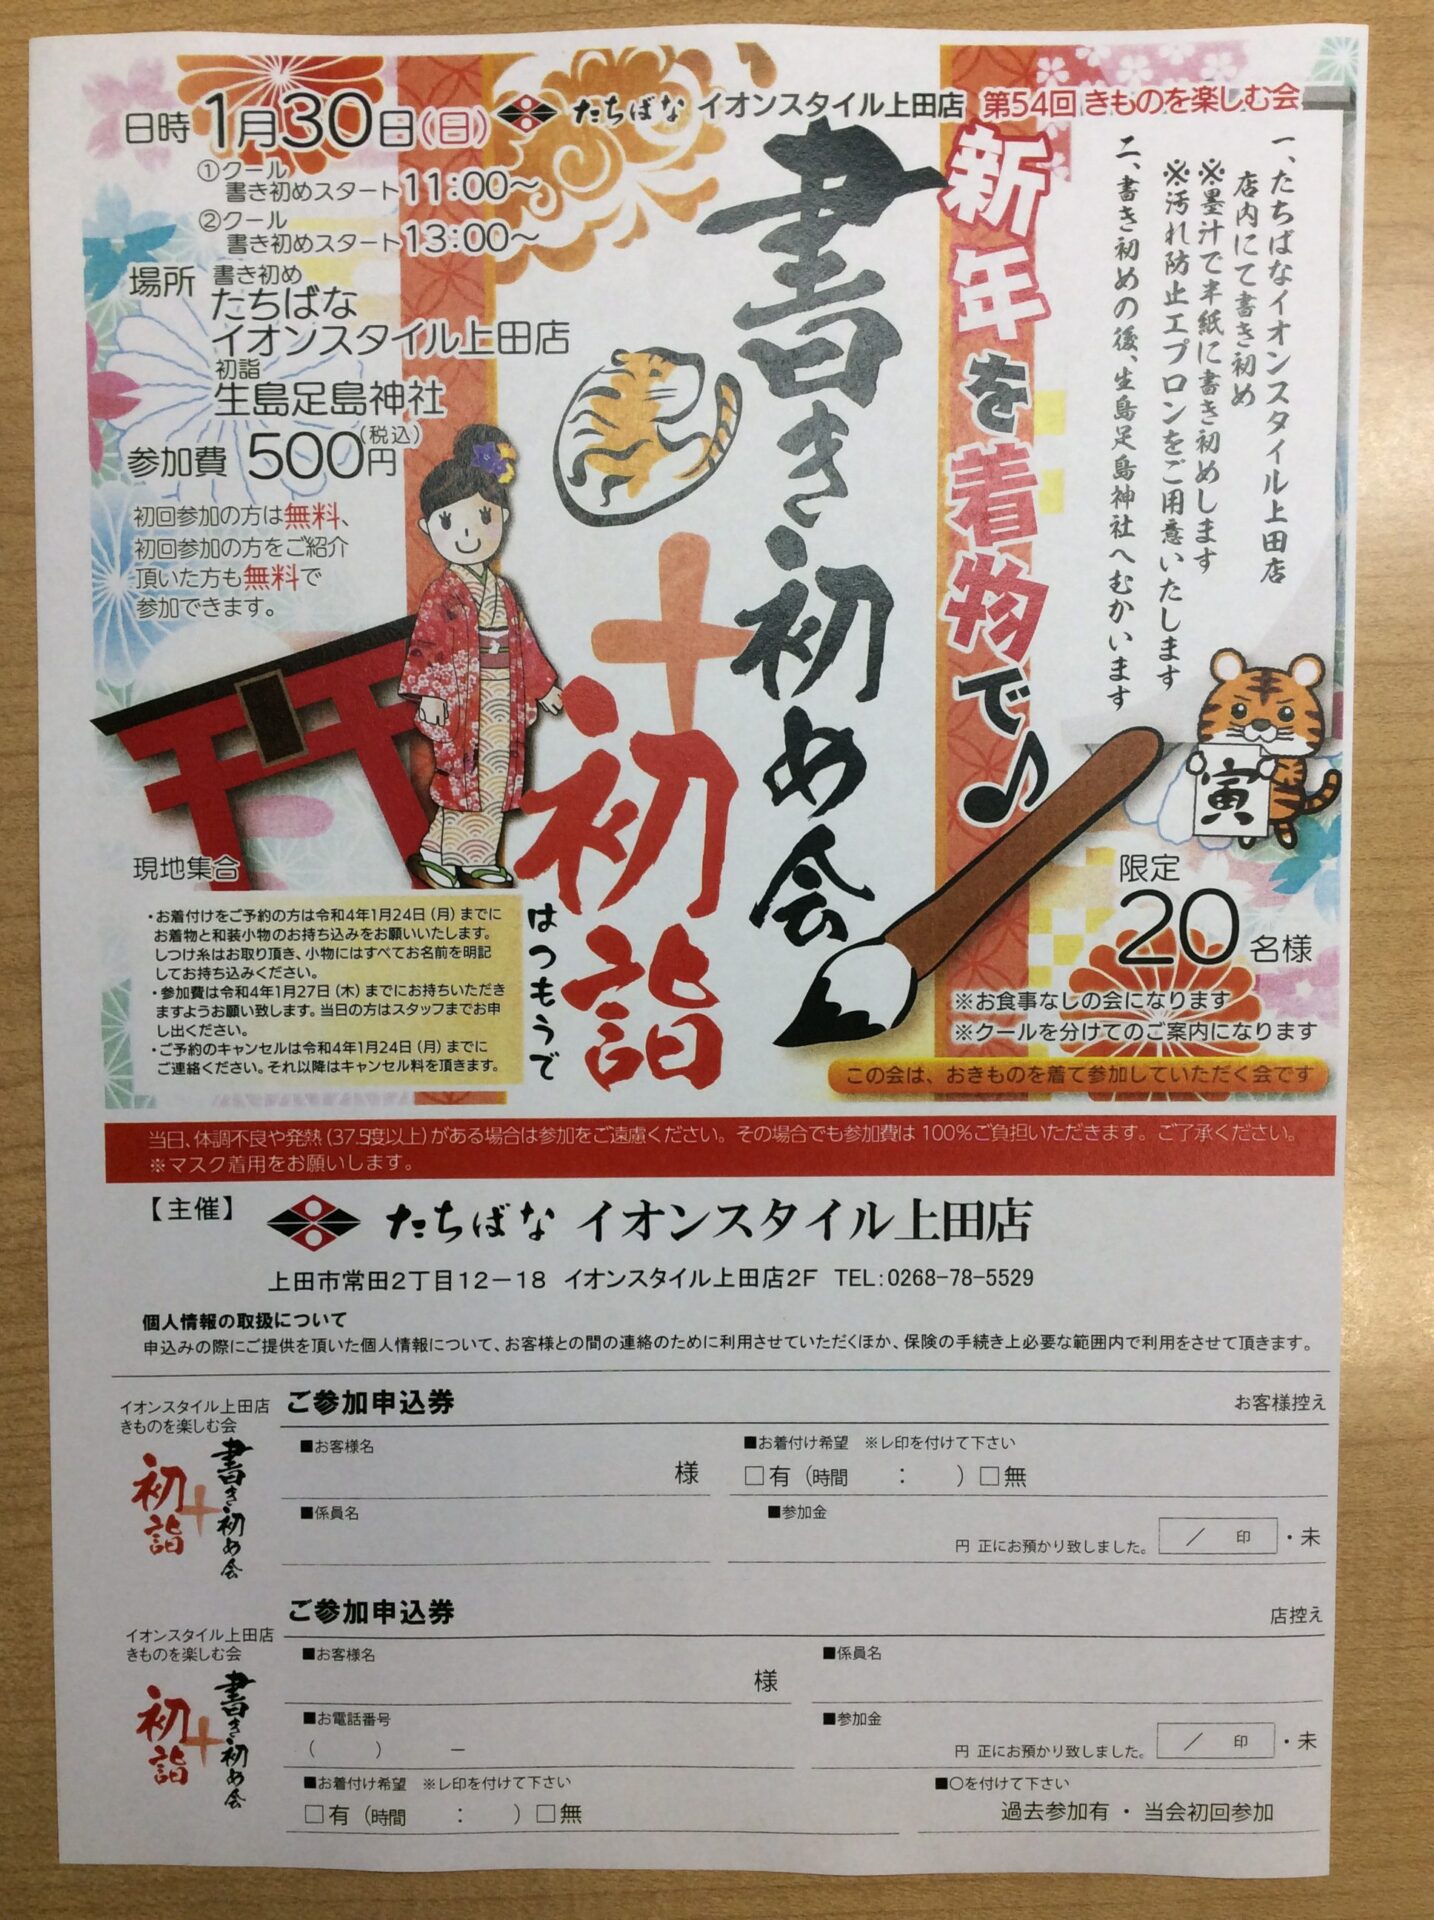 日時 1月30日(日)
①クール
書き初めスタート11:00〜
②クール
書き初めスタート13:00〜
場所 書き初め
たちばな
イオンスタイル上田店
初詣
生島足島神社
参加費 500円(税込)
初回参加の方は無料、
初回参加の方をご紹介
頂いた方も無料で
参加できます。
たちばな イオンスタイル上田店 第54回 きものを楽しむ会
新年を着物で♪
書き初め会
+
初詣
はつもうで
一、たちばなイオンスタイル上田店
店内にて書き初め
※墨汁で半紙に書き初めします
※汚れ防止エプロンをご用意いたします
二、書き初めの後、生島足島神社へむかいます
寅
現地集合
・お着付けをご予約の方は令和4年1月24日(月)までに
お着物と和装小物のお持ち込みをお願いいたします。
しつけ糸はお取り頂き、小物にはすべてお名前を明記
してお持ち込みください。
・参加費は令和4年1月27日(木)までにお持ちいただき
ますようお願い致します。当日の方はスタッフまでお申
し出ください。
・ご予約のキャンセルは令和4年1月24日(月)までに
ご連絡ください。それ以降はキャンセル料を頂きます。
限定
20名様
※お食事なしの会になります
※クールを分けてのご案内になります
この会は、おきものを着て参加していただく会です
当日、体調不良や発熱(37.5度以上)がある場合は参加をご遠慮ください。その場合でも参加費は100%ご負担いただきます。ご了承ください。
※マスク着用をお願いします。
【主催】 たちばな イオンスタイル上田店
上田市常田2丁目12−18 イオンスタイル上田店2F TEL:0268-78-5529
個人情報の取扱について
申込みの際にご提供を頂いた個人情報について、お客様との間の連絡のために利用させていただくほか、保険の手続き上必要な範囲内で利用をさせて頂きます。
イオンスタイル上田店
きものを楽しむ会
書き初め会
+
初詣
ご参加申込券 お客様控え
■お客様名 様
■お着付け希望 ※レ印を付けて下さい
□有(時間 : )□無
■係員名
■参加金
円 正にお預かり致しました。 / 印 ・未
イオンスタイル上田店
きものを楽しむ会
書き初め会
+
初詣
ご参加申込券 店控え
■お客様名 様
■係員名
■お電話番号
( ) −
■参加金
円 正にお預かり致しました。 / 印 ・未
■お着付け希望 ※レ印を付けて下さい
□有(時間 : )□無
■○を付けて下さい
過去参加有 ・ 当会初回参加